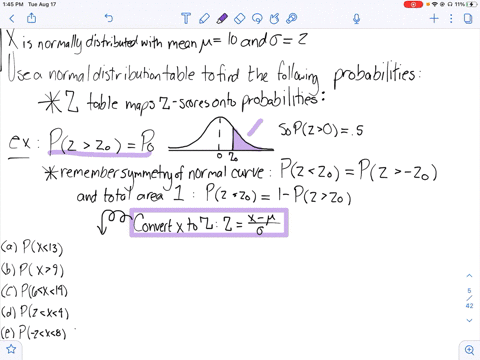 1:45 PM Tue Aug 17
11%
X is normally distributed with mean μ = 10 and σ = 2
Use a normal distribution table to find the following probabilities:
* Z table maps Z-scores onto probabilities:
ex: P(Z > Z₀) = P₀
So P(Z>0) = .5
0 Z₀
* remember symmetry of normal curve: P(Z < Z₀) = P(Z > -Z₀)
and total area 1: P(Z < Z₀) = 1 - P(Z > Z₀)
Convert x to Z: Z = (x-μ)/σ
(a) P(x<13)
(b) P(x>9)
(c) P(6<x<14)
(d) P(2<x<4)
(e) P(-2<x<8)
5
/
42